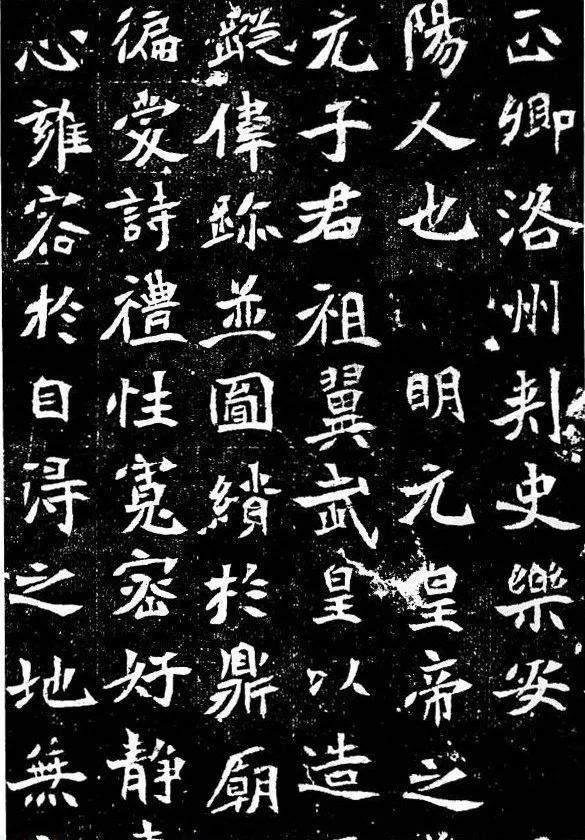 正卿洛州刺史樂安
陽人也明元皇帝之
元子君祖翼武皇以造
蹤偉跡並圖績於鼎廟
徧愛詩禮性寬密好靜
心雍容於自得之地無